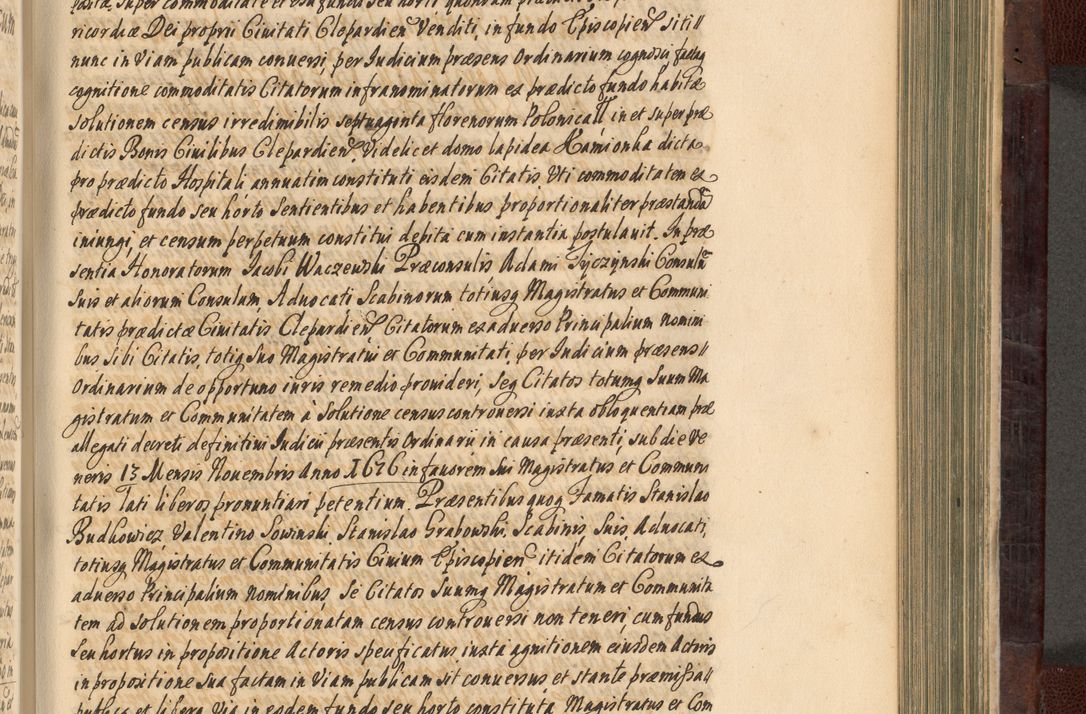 ricordiæ Dei proprii Civitati Clepardien Venditi, in fundo Episcopien siti
nunc in Viam publicam conversi, per Iudicium præsens Ordinarium cognosci factaq
cognitione commoditatis Citatorum infranominatorum ex prædicto fundo habitæ
solutionem census irredimibilis septuaginta florenorum Polonicall in et super præ
dictis Bonis Civilibus Clepardien, Videlicet domo lapidea Kamionka dicta
pro prædicto Hospitali annuatim constituti eisdem Citatis Vti commoditatem ex
prædicto fundo seu horto Sentientibus et habentibus proportionaliter præstand
iniungi, et censum perpetuum constitui debita cum instantia postulavit. In præ
sentia Honoratorum Iacobi Waczewski Præconsulis Adami Tyczynski Consulu
suis et aliorum Consulum Advocati Scabinorum totiusq Magistratus et Communi
tatis prædictæ Civitatis Clepardien Citatorum ex adverso Principalium nomini
bus Sibi Citatis, totiq Suo Magistratui et Communitati, per Iudicium præsens
Ordinarium de opportuno iuris remedio provideri, Seq Citatos totumq Suum Ma
gistratum et Communitatem à Solutione census controversi iuxta obloquentiam præ
allegati decreti definitivi Iudicii præsentis Ordinarii in causa præsenti, sub die Ve
neris 13 Mensis Novembris Anno 1676 in favorem Sui Magistratus et Communi
tatis Lati liberos pronuntiari petentium. Præsentibus quoq Famatis Stanislao
Budkowicz Valentino Sowinski Stanislao Grabowski Scabinis Suis Advocati,
totiusq Magistratus et Communitatis Civium Episcopien itidem Citatorum ex
adverso Principalium nominibus Se Citatos Suumq Magistratum et Communita
tem ad Solutionem proportionatam census controversi non teneri, cum fundus
Seu hortus in propositione Actoris specificatus iuxta agnitionem eiusdem Actoris
in propositione Sua factam in Viam publicam sit conversus et stante præmissa
publica et libera Via in eodem fundo seu horto constituta Magistratus et Com